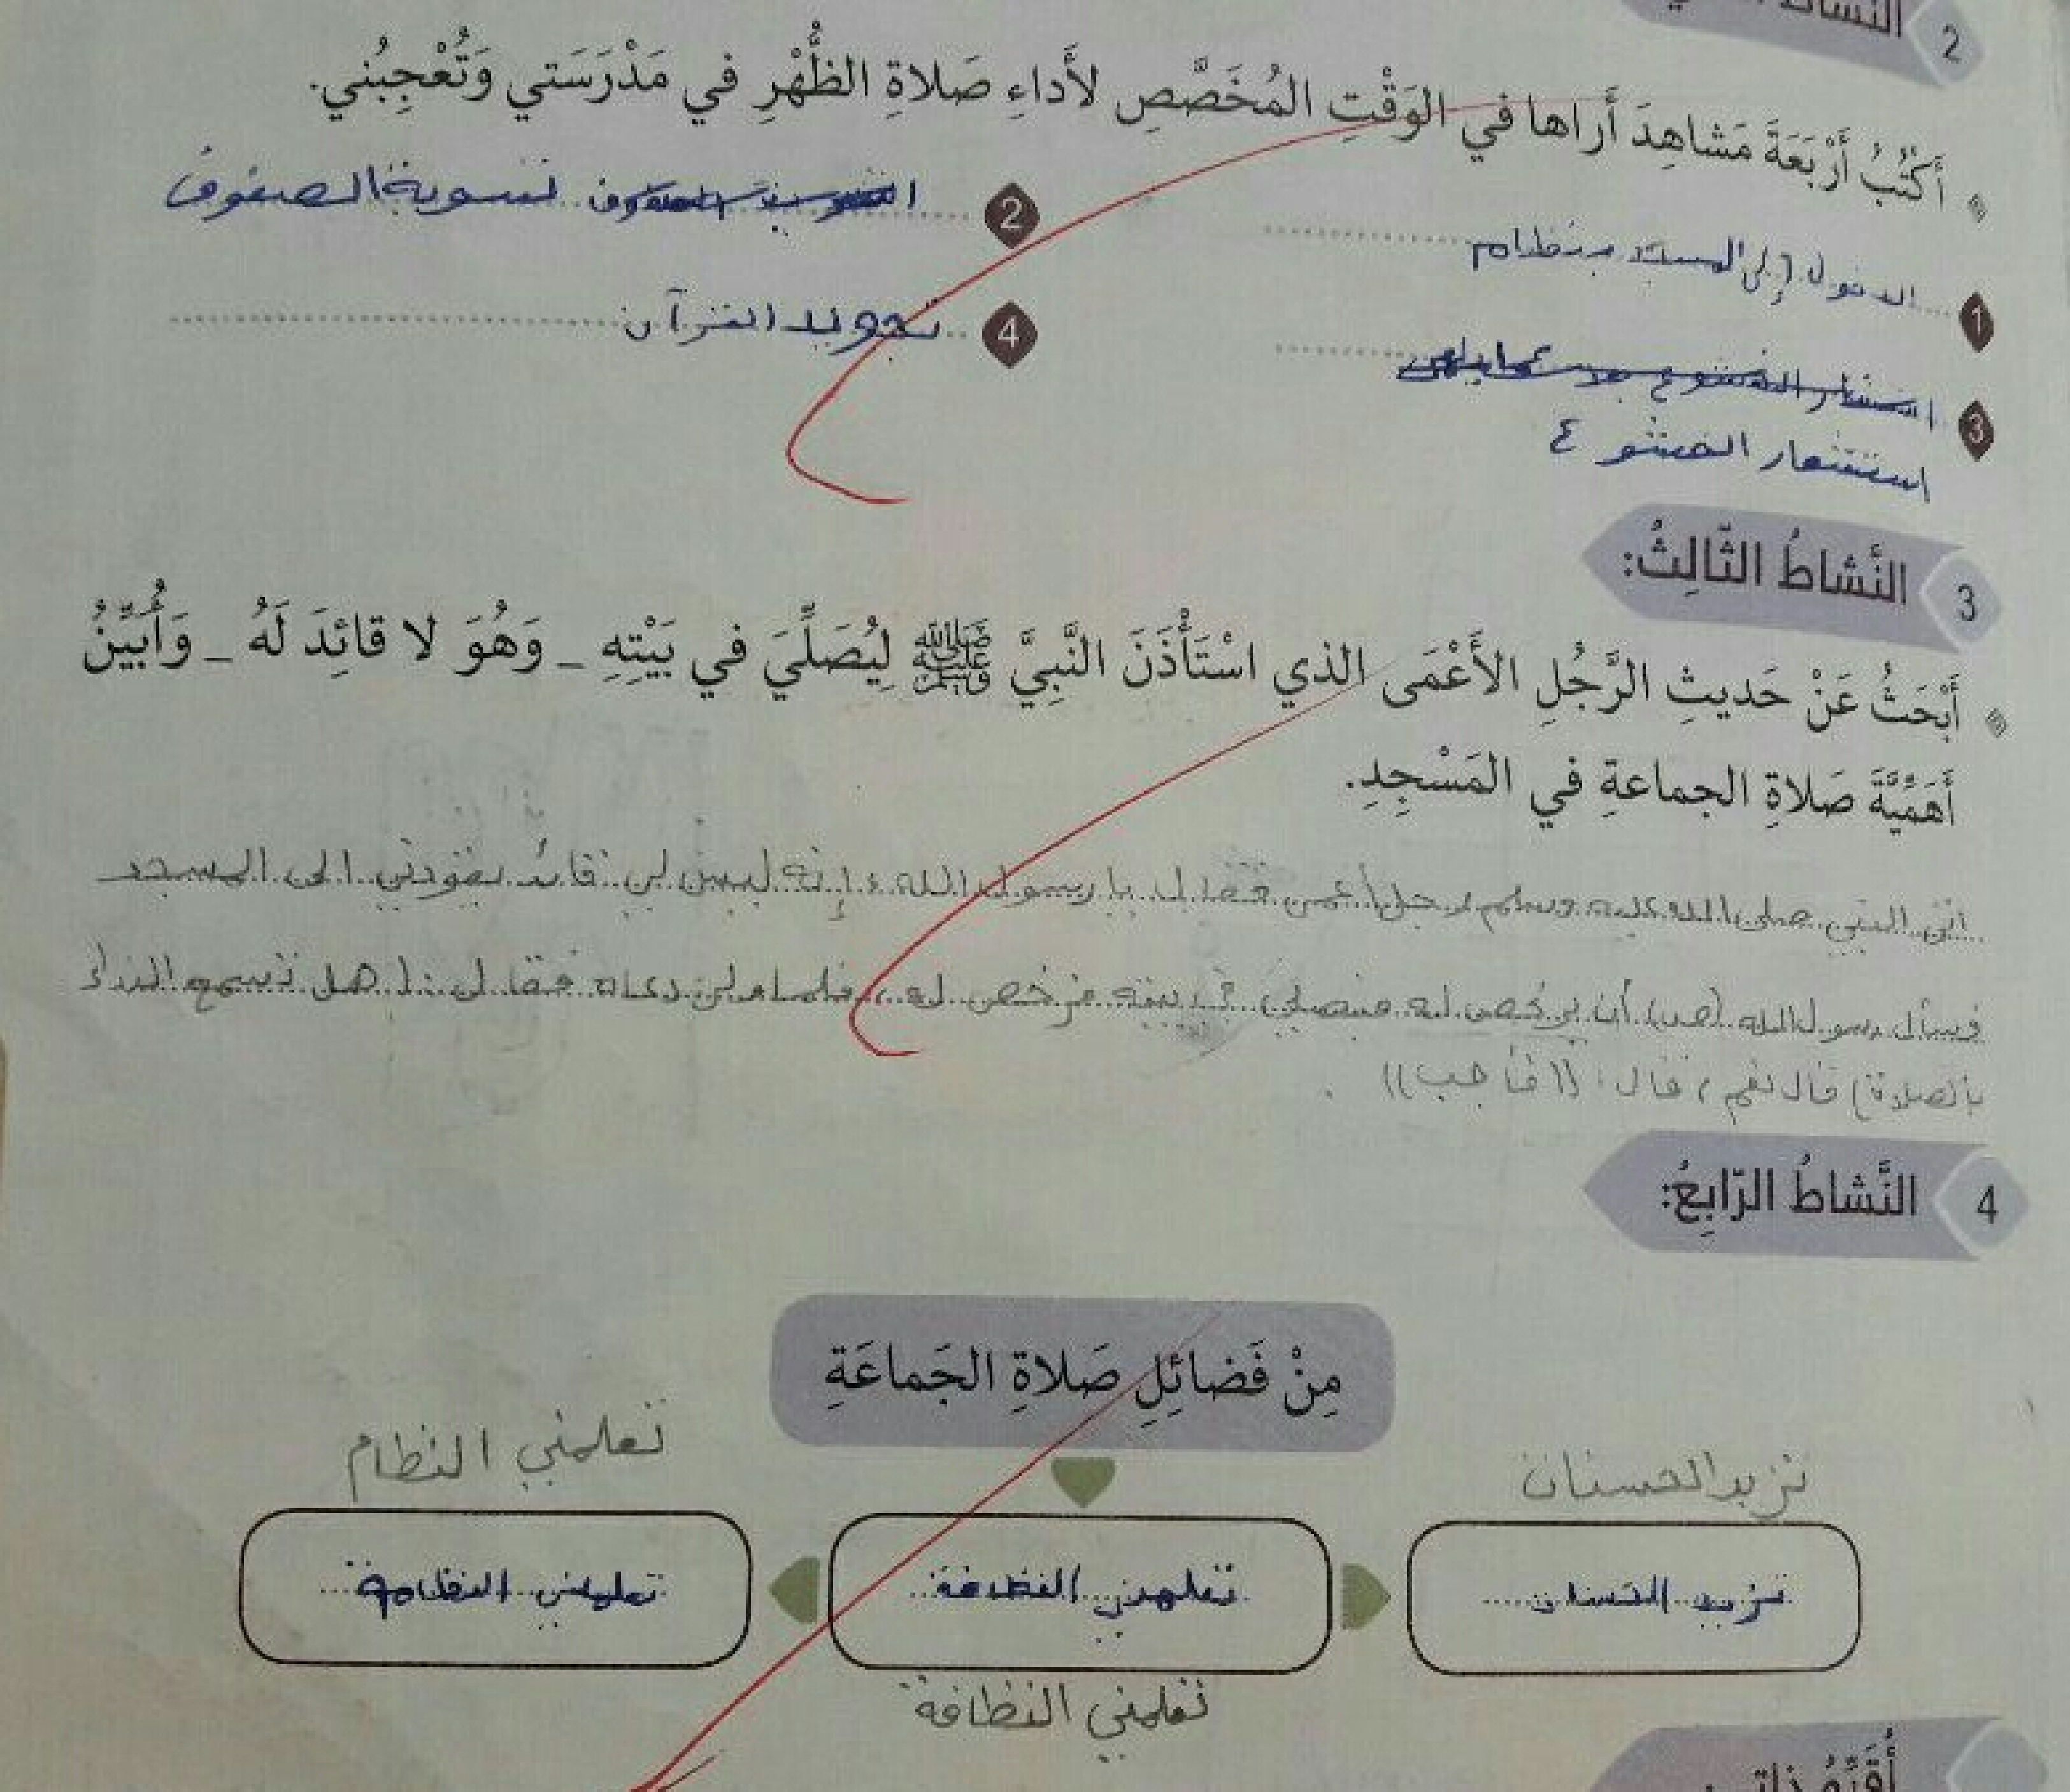 2 النشاط
أَكْتُبُ أَرْبَعَةَ مَشاهِدَ أَراها في الوَقْتِ المُخَصَّصِ لأَداءِ صَلاةِ الظُّهْرِ في مَدْرَسَتي وَتُعْجِبُني.
1 الدخول إلى المسجد بنظام
2 تسوية الصفوف
3 استشعار الخشوع
4 تجويد القرآن
3 النَّشاطُ الثّالِثُ:
أَبْحَثُ عَنْ حَديثِ الرَّجُلِ الأَعْمَى الذي اسْتَأْذَنَ النَّبِيَّ ﷺ لِيُصَلِّيَ في بَيْتِهِ - وَهُوَ لا قائِدَ لَهُ - وَأُبَيِّنُ
أَهَمِّيَّةَ صَلاةِ الجماعةِ في المَسْجِدِ.
اتى النبي صلى الله عليه وسلم رجل أعمى فقال يا رسول الله، إنه ليس لي قائد يقودني الى المسجد
فسأل رسول الله (ص) أن يرخص له فيصلي في بيته فرخص له، فلما ولى دعاه فقال: هل تسمع النداء
بالصلاة) قال نعم، قال: ((فأجب)).
4 النَّشاطُ الرّابِعُ:
مِنْ فَضائِلِ صَلاةِ الجَماعَةِ
تزيد الحسنات
تعلمني النظام
تزيد الحسنات
تعلمني النظافة
تعلمني النظام
تعلمني النظافة
أُقَيِّمُ ذاتي: